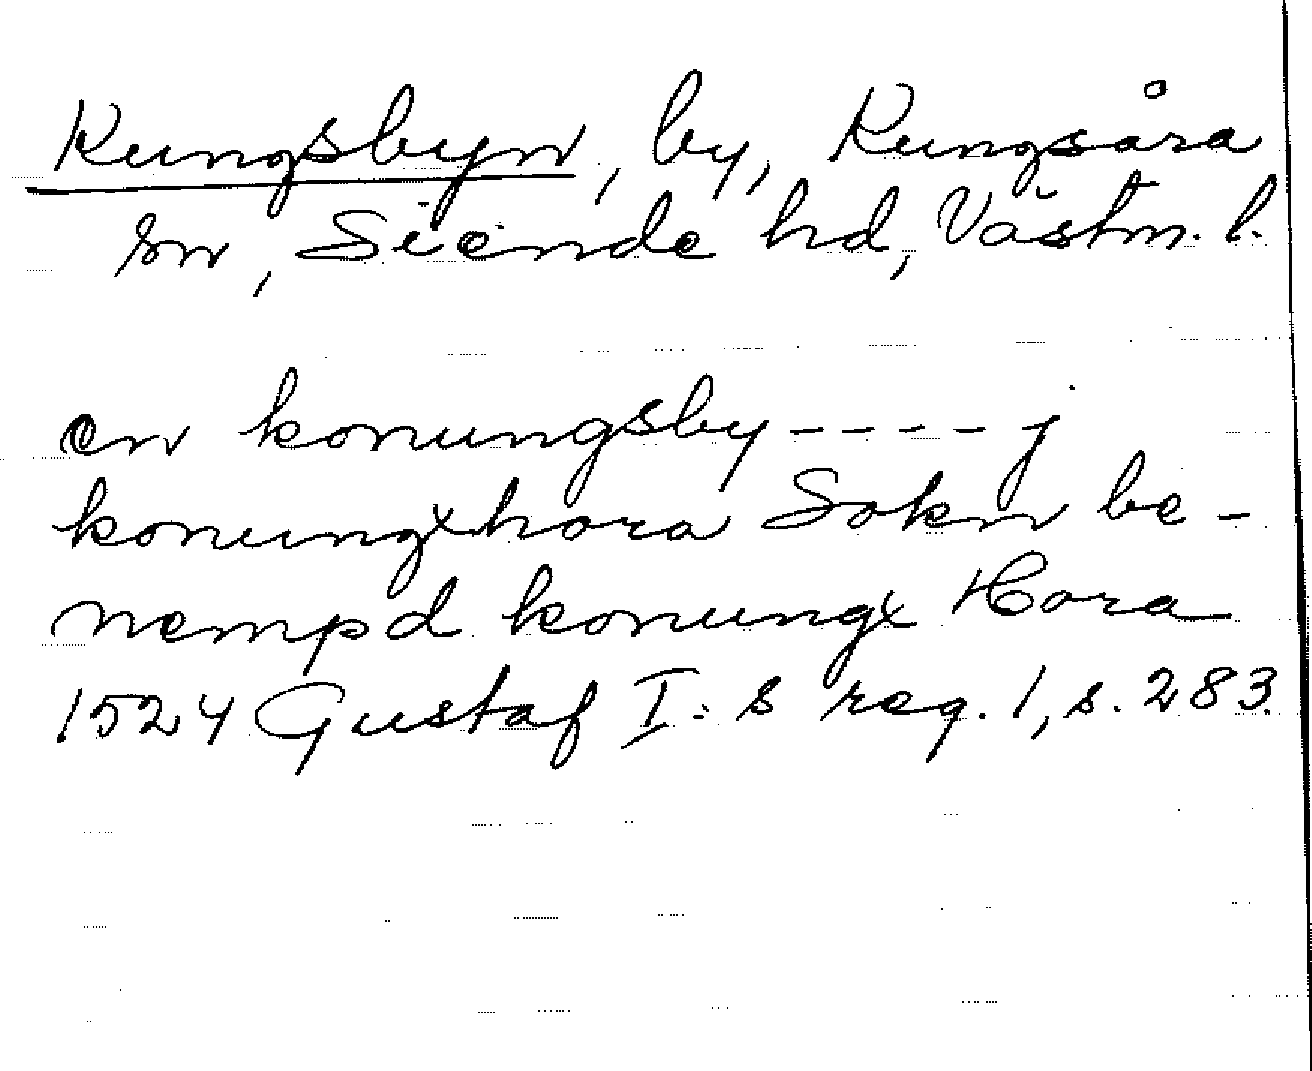 Kungsbyn, by, Kungsåra
sn, Siende hd, Västm. l.
en konungsby - - - - j
konungxhora Sokn be-
nempd konungx Hora
1524 Gustaf I:s reg. 1, s. 283.